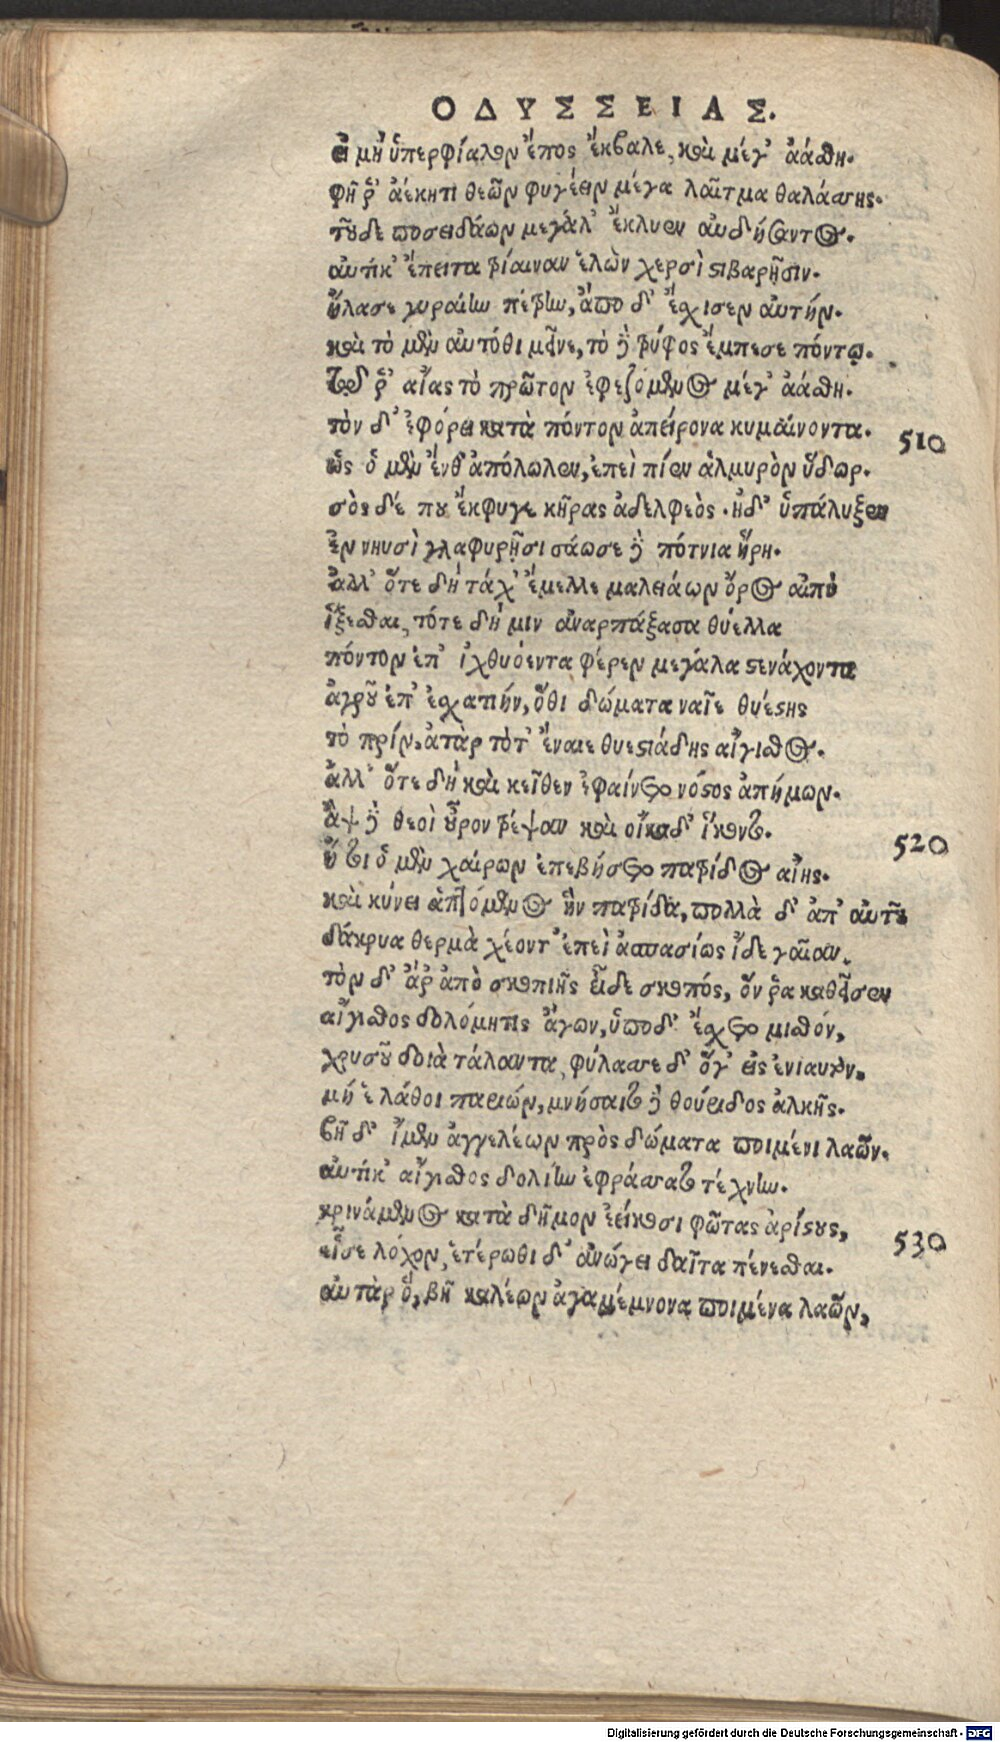 ΟΔΥΣΣΕΙΑΣ.
εἰ μὴ ὑπερφίαλον ἔπος ἔκβαλε, καὶ μέγ' ἀάσθη.
φῆ ῥ' ἀέκητι θεῶν φυγέειν μέγα λαῖτμα θαλάσσης.
τοῦ δὲ ποσειδάων μεγάλ' ἔκλυεν αὐδήσαντος.
αὐτίκ' ἔπειτα τρίαιναν ἑλὼν χερσὶ στιβαρῇσιν.
ἤλασε γυραίην πέτρην, ἀπὸ δ' ἔσχισεν αὐτήν.
καὶ τὸ μὲν αὐτόθι μεῖνε, τὸ δὲ τρύφος ἔμπεσε πόντῳ.
τῷ ῥ' αἴας τὸ πρῶτον ἐφεζόμενος μέγ' ἀάσθη.
τὸν δ' ἐφόρει κατὰ πόντον ἀπείρονα κυμαίνοντα.
510
ὣς ὁ μὲν ἔνθ' ἀπόλωλεν, ἐπεὶ πίεν ἁλμυρὸν ὕδωρ.
σὸς δέ που ἔκφυγε κῆρας ἀδελφεὸς. ἠδ' ὑπάλυξεν
ἐν νηυσὶ γλαφυρῇσι σάωσε δὲ πότνια ἥρη.
ἀλλ' ὅτε δὴ τάχ' ἔμελλε μαλειάων ὄρος αἰπὺ
ἵξεσθαι, τότε δή μιν ἀναρπάξασα θύελλα
πόντον ἐπ' ἰχθυόεντα φέρεν μεγάλα στενάχοντα
ἀγροῦ ἐπ' ἐσχατιήν, ὅθι δώματα ναῖε θυέστης
τὸ πρίν, ἀτὰρ τότ' ἔναιε θυεστιάδης αἴγισθος.
ἀλλ' ὅτε δὴ καὶ κεῖθεν ἐφαίνετο νόστος ἀπήμων.
ἂψ δὲ θεοὶ οὖρον τρέψαν καὶ οἴκαδ' ἵκοντο.
520
ἤτοι ὁ μὲν χαίρων ἐπεβήσετο πατρίδος αἴης.
καὶ κύνει ἁπτόμενος ἣν πατρίδα, πολλὰ δ' ἀπ' αὐτοῦ
δάκρυα θερμὰ χέοντ' ἐπεὶ ἀσπασίως ἴδε γαῖαν.
τὸν δ' ἄρ' ἀπὸ σκοπιῆς εἶδε σκοπός, ὅν ῥα καθεῖσεν
αἴγισθος δολόμητις ἄγων, ὑπὸ δ' ἔσχετο μισθόν,
χρυσοῦ δοιὰ τάλαντα, φύλασσε δ' ὅγ' εἰς ἐνιαυτόν.
μή ἑ λάθοι παριών, μνήσαιτο δὲ θούριδος ἀλκῆς.
βῆ δ' ἴμεν ἀγγελέων πρὸς δώματα ποιμένι λαῶν.
αὐτίκ' αἴγισθος δολίην ἐφράσσατο τέχνην.
κρινάμενος κατὰ δῆμον ἐείκοσι φῶτας ἀρίστους,
530
εἷσε λόχον, ἑτέρωθι δ' ἀνώγει δαῖτα πένεσθαι.
αὐτὰρ ὁ, βῆ καλέων ἀγαμέμνονα ποιμένα λαῶν,
Digitalisierung gefördert durch die Deutsche Forschungsgemeinschaft - DFG